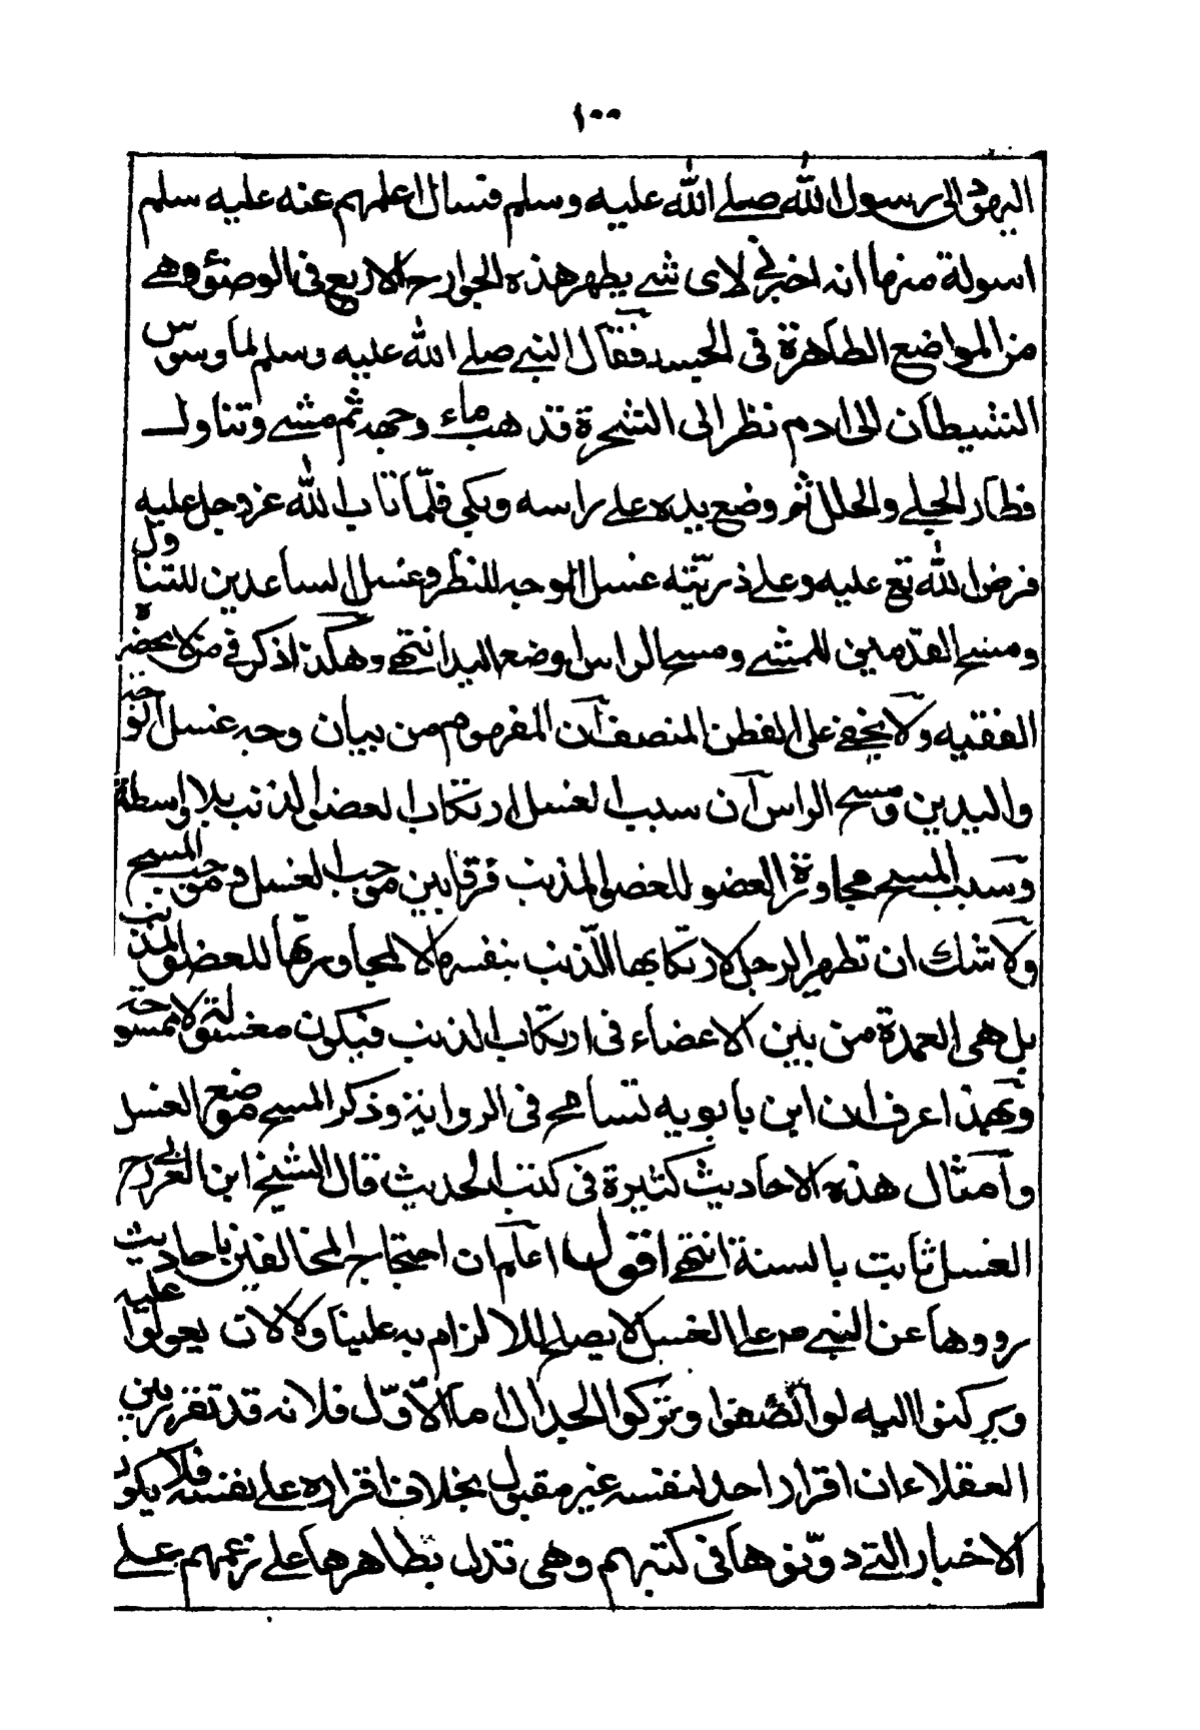 ١٠٠
اليهود الى رسول الله صلے الله عليه وسلم فسال اعلمهم عنه عليه سلم
اسولة منها انه اخبرنى لاى شے يطهر هذه الجوارح الاربع فى الوضوء وهے
من المواضع الطاهرة فى الجسد فقال النبے صلے الله عليه وسلم لما وسوس
الشيطان الى ادم نظر الى الشجرة فذهب ماء وجهه ثم مشے وتناول
فطار الحلے والحلل ثم وضع يده علے راسه وبكى فلمّا تاب الله عز وجل عليه
فرض الله تع عليه وعلے ذرّيّته غسل الوجه للنظر وغسل الساعدين للتناول
ومسح القدمين للمشے ومسح الراس لوضع اليد انتهے وهكذا ذكر فى من لا يحضره
الفقيه ولا يخفے على الفطن المنصف ان المفهوم من بيان وجه غسل الوجه
واليدين ومسح الراس ان سبب الغسل ارتكاب العضو الذنب بلا واسطة
وسبب المسح مجاورة العضو للعضو المذنب فرقا بين موجب الغسل وموجب المسح
ولا شك ان تطهير الرجل لارتكابها الذنب بنفسها لا لمجاورتها للعضو المذنب
بل هى العمدة من بين الاعضاء فى ارتكاب الذنب فيكون مغسولة لا ممسوحة
وبهذا عرف ان ابن بابويه تسامح فى الرواية وذكر المسح موضع الغسل
وامثال هذه الاحاديث كثيرة فى كتب الحديث قال الشيخ ابن العربى رح
الغسل ثابت بالسنة انتهے اقول اعلم ان احتجاج المخالفين باحاديث
رووها عن النبے م على الغسل لا يصلح للالزام به علينا ولا لان يعولوا عليه
ويركنوا اليه لو انصفوا وتركوا الجدال اما الاوّل فلانه قد تقرر بين
العقلاء ان اقرار احد لنفسه غير مقبول بخلاف اقراره علے نفسه فلا يكون
الاخبار التے دوّنوها فى كتبهم وهى تدل بظاهرها علے زعمهم علے